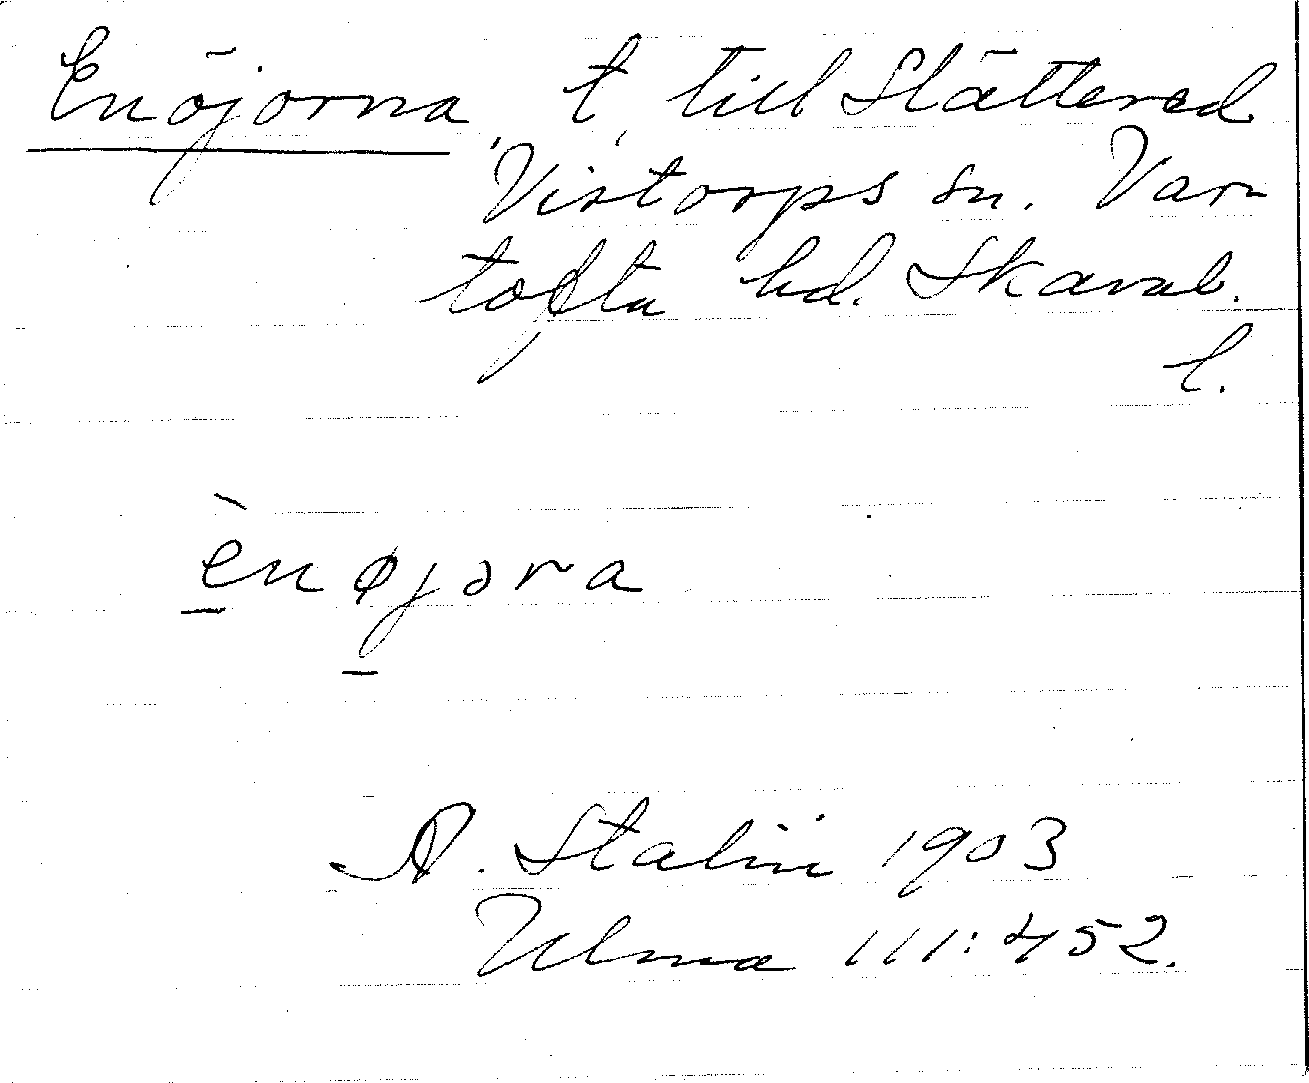 Enöjorna, t. till Slättered
Vistorps sn. Var-
tofta hd. Skarab.
l.
ènøjəra
A. Stalin 1903
Ulma 111:452.